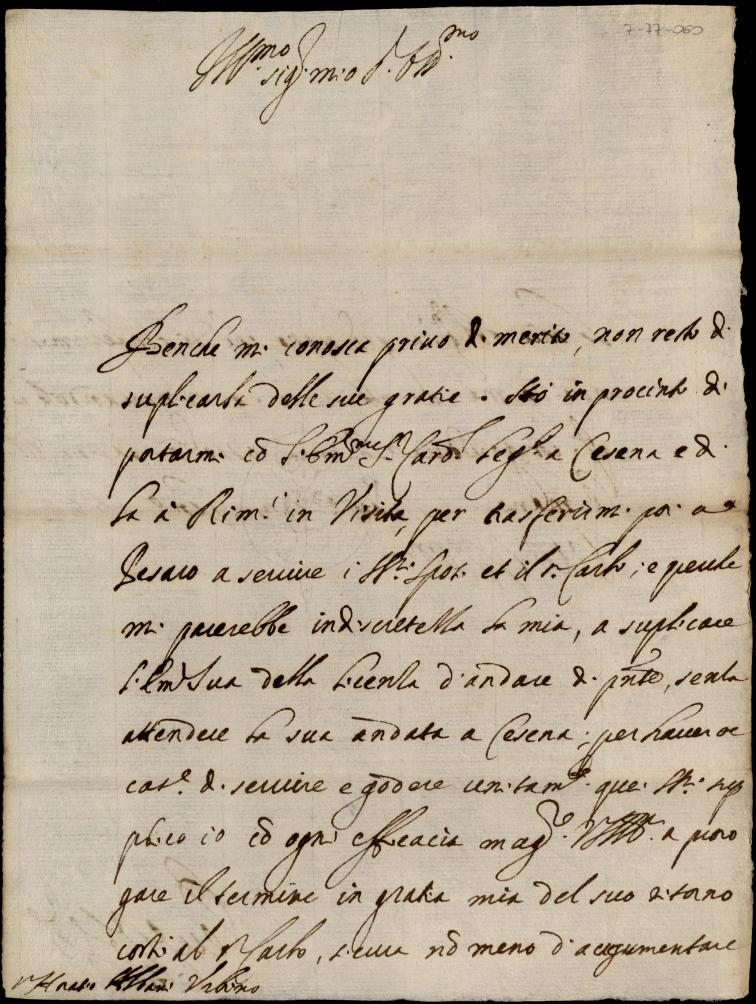 7-77-060
Ill.mo sig.r mio P.ron Col.mo
Benche mi conosca priuo di merito, non resto di
suplicarla delle sue gratie. Stò in procinto di
portarmi cō l'Em.mo S.r Card.l Leg.o a Cesena e di
là à Rim.i in Visita, per trasferirmi poi a
Pesaro a seruire i SS.ri Sposi et il S.r Carlo; e perche
mi parerebbe indiscretella la mia, a suplicare
l'Em.a Sua della licenza d'andare di pnte, senza
attendere la sua andata a Cesena; per hauer oc
cas.e di seruire e godere unitam.te quei SS.ri sup
plico io cō ogni efficacia mag.re V.S. Ill.ma a proro
gare il termine in gratia mia del suo ritorno
costì al S.r Carlo, sicura nō meno d'augumentare
S.r Horatio Albani Urbino